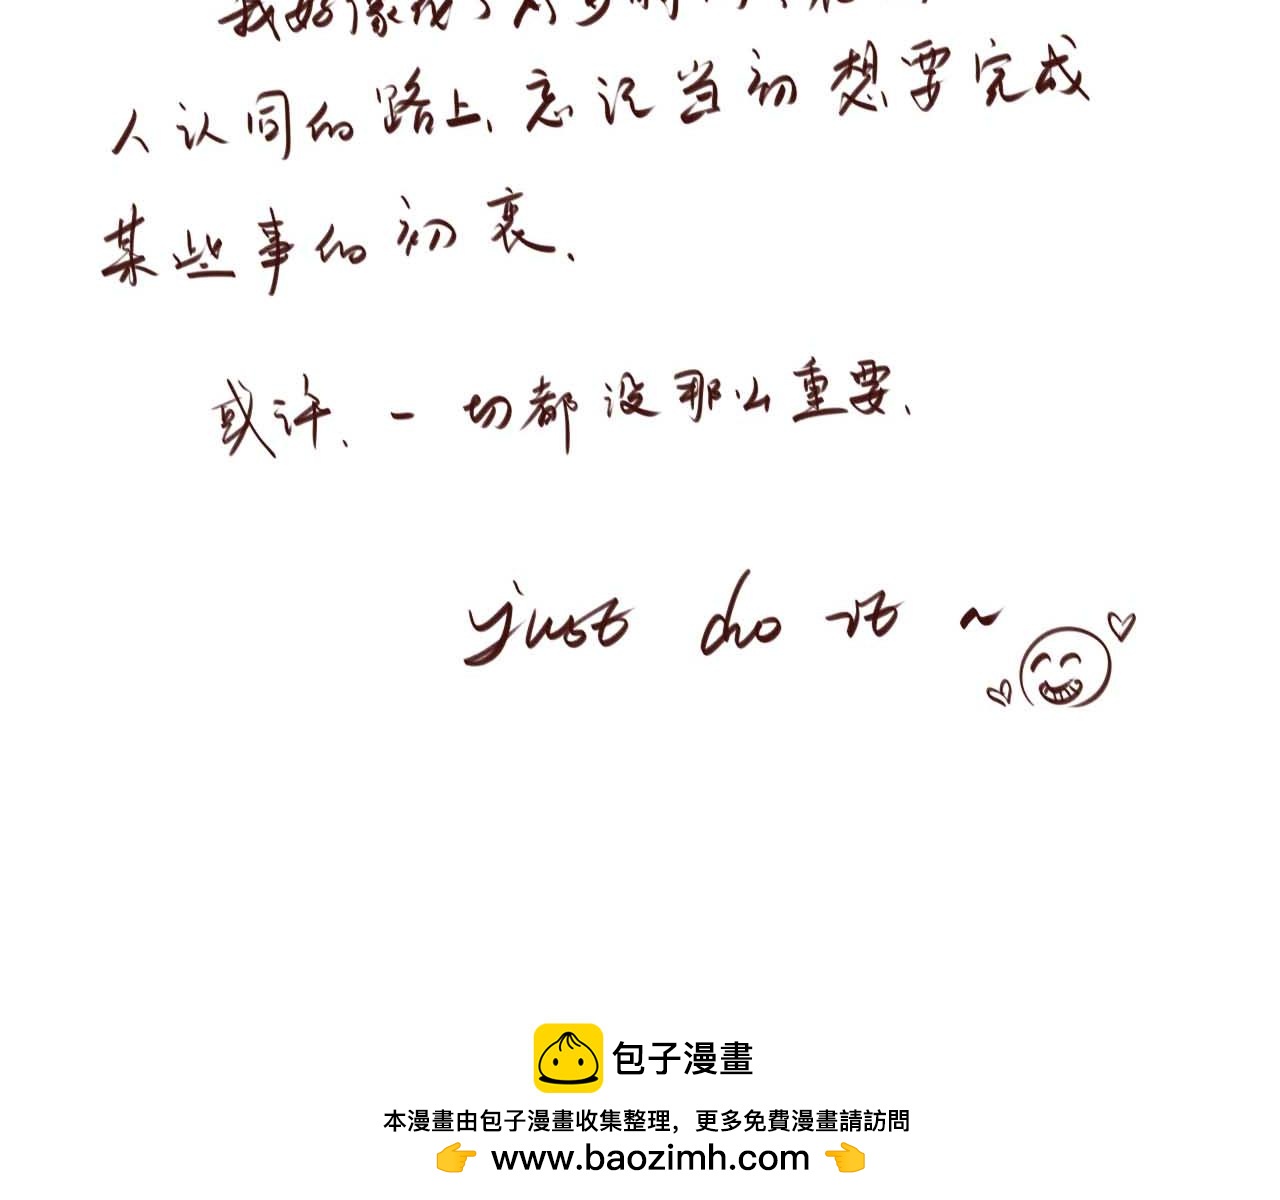 我好像
人认同的路上、忘记当初想要完成
某些事的初衷、
或许、一切都没那么重要、
just do it ~
包子漫畫
本漫畫由包子漫畫收集整理，更多免費漫畫請訪問
👉 www.baozimh.com 👈